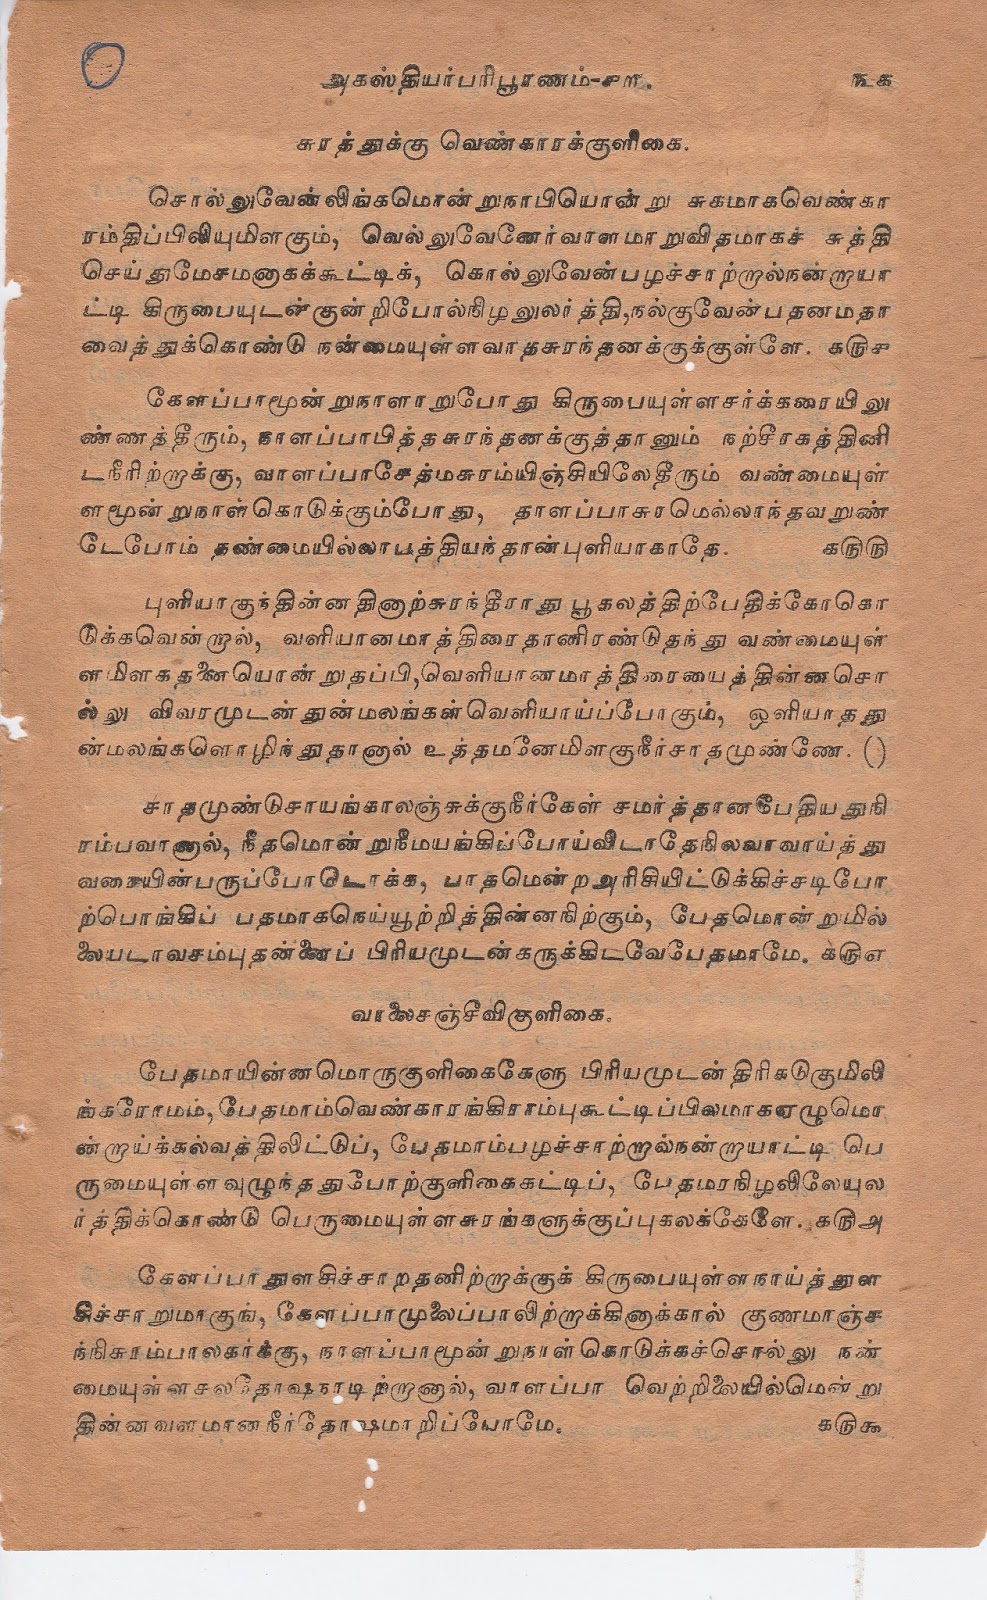 அகஸ்தியர்பரிபூரணம்-௪௱. ௩௧
சுரத்துக்கு வெண்காரக்குளிகை.
சொல்லுவேன்லிங்கமொன்றுநாபியொன்று சுகமாகவெண்கா
ரம்திப்பிலியுமிளகும், வெல்லுவேனேர்வாளமாறுவிதமாகச் சுத்தி
செய்துமேசமனாகக்கூட்டிக், கொல்லுவேன்பழச்சாற்றால்நன்றாயா
ட்டி கிருபையுடன்குன்றிபோல்நிழலுலர்த்தி,நல்குவேன்பதனமதா
வைத்துக்கொண்டு நன்மையுள்ளவாதசுரந்தனக்குக்குள்ளே. ௧௫௪
கேளப்பாமூன்றுநாளாறுபோது கிருபையுள்ளசர்க்கரையிலு
ண்ணத்தீரும், நாளப்பாபித்தசுரந்தனக்குத்தானும் நற்சீரகத்தினி
டநீரிற்றாக்கு, வாளப்பாசேத்மசுரம்யிஞ்சியிலேதீரும் வண்மையுள்
ளமூன்றுநாள்கொடுக்கும்போது, தாளப்பாசுரமெல்லாந்தவறுண்
டேபோம் தண்மையில்லாபத்தியந்தான்புளியாகாதே. ௧௫௫
புளியாகுந்தின்னதினாற்சுரந்தீராது பூகலத்திற்பேதிக்கோகொ
டுக்கவென்றால், வளியானமாத்திரைதானிரண்டுதந்து வண்மையுள்
ளமிளகதனையொன்றுதப்பி,வெளியானமாத்திரையைத்தின்னசொ
ல்லு விவரமுடன்துன்மலங்கள்வெளியாய்ப்போகும், ஒளியாதது
ன்மலங்களொழிந்துதானால் உத்தமனேமிளகுநீர்சாதமுண்ணே. ()
சாதமுண்டுசாயங்காலஞ்சுக்குநீர்கேள் சமர்த்தானபேதியதுநி
ரம்பவானால், நீதமொன்றுநீமயங்கிப்போய்விடாதேநிலவாவாய்த்து
வரையின்பருப்போடொக்க, பாதமென்றஅரிசியிட்டுக்கிச்சடிபோ
ற்பொங்கிப் பதமாகநெய்யூற்றித்தின்னநிற்கும், பேதமொன்றுமில்
லையடாவசம்புதன்னைப் பிரியமுடன்கருக்கிடவேபேதமாமே. ௧௫௭
வாலைசஞ்சீவிகுளிகை.
பேதமாயின்னமொருகுளிகைகேளு பிரியமுடன்திரிகடுகுமிலி
ங்கரோமம்,பேதமாம்வெண்காரங்கிராம்புகூட்டிப்பிலமாகஏழுமொ
ன்றாய்க்கல்வத்திலிட்டுப், பேதமாம்பழச்சாற்றால்நன்றாயாட்டி பெ
ருமையுள்ளவுழுந்ததுபோற்குளிகைகட்டிப், பேதமரநிழலிலேயுல
ர்த்திக்கொண்டு பெருமையுள்ளசுரங்களுக்குப்புகலக்கேளே. ௧௫௮
கேளப்பாதுளசிச்சாறதனிற்றாக்குக் கிருபையுள்ளநாய்த்துள
சிச்சாறுமாகுங், கேளப்பாமூலைப்பாலிற்றாக்கினாக்கால் குணமாஞ்ச
ந்நிசுரம்பாலகர்க்கு, நாளப்பாமூன்றுநாள்கொடுக்கச்சொல்லு நன்
மையுள்ளசலதோஷநாடிற்றானால், வாளப்பா வெற்றிலையில்மென்று
தின்னவளமானநீர்தோஷமாறிப்போமே. ௧௫௯